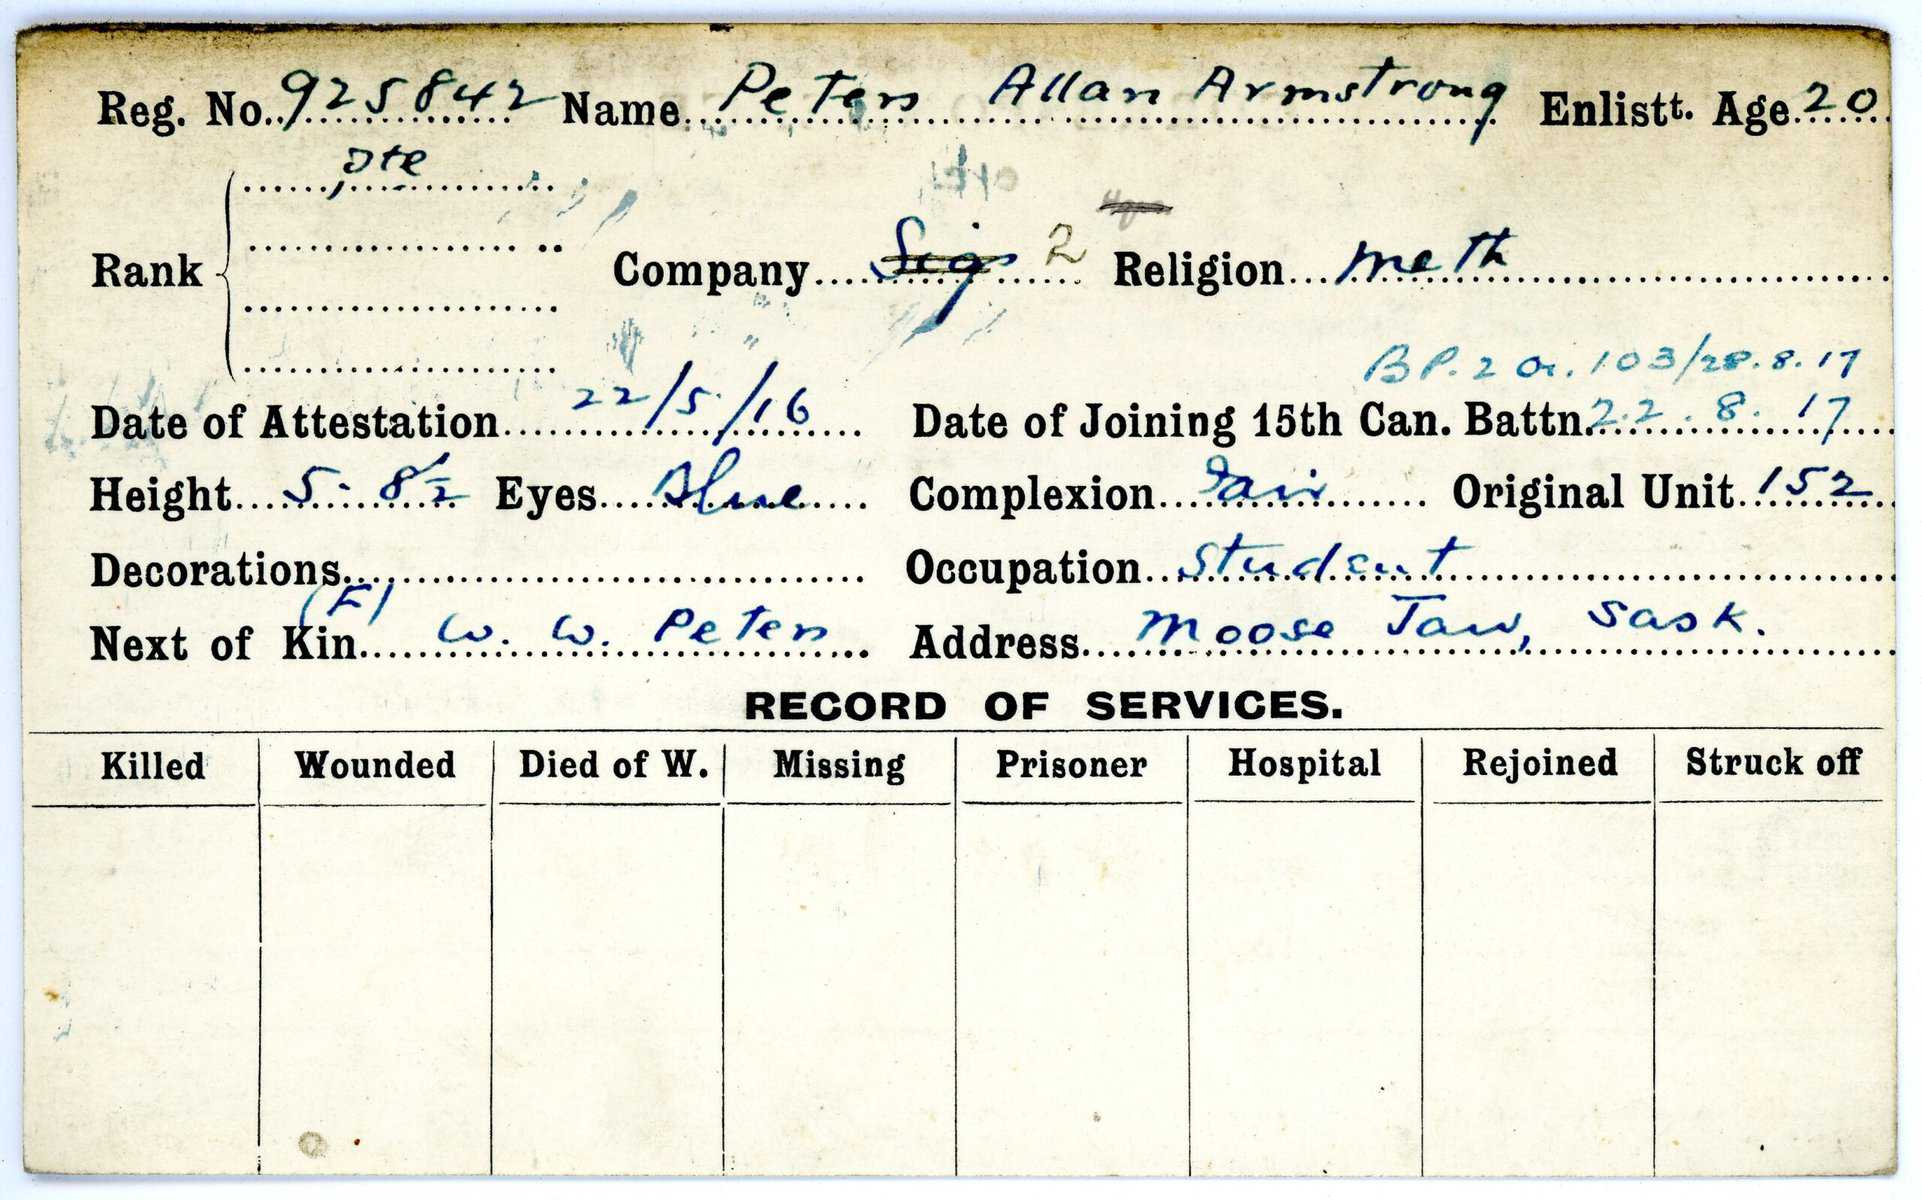 Reg. No. 925842 Name Peters Allan Armstrong Enlistt. Age 20
Pte
Rank Company Sigs 2 Religion Meth
B P. 2 Or. 103/28.8.17
Date of Attestation 22/5/16 Date of Joining 15th Can. Battn. 22.8.17
Height 5-8½ Eyes Blue Complexion Fair Original Unit 152
Decorations Occupation Student
(F)
Next of Kin W. W. Peters Address Moose Jaw, Sask.
RECORD OF SERVICES.
Killed Wounded Died of W. Missing Prisoner Hospital Rejoined Struck off